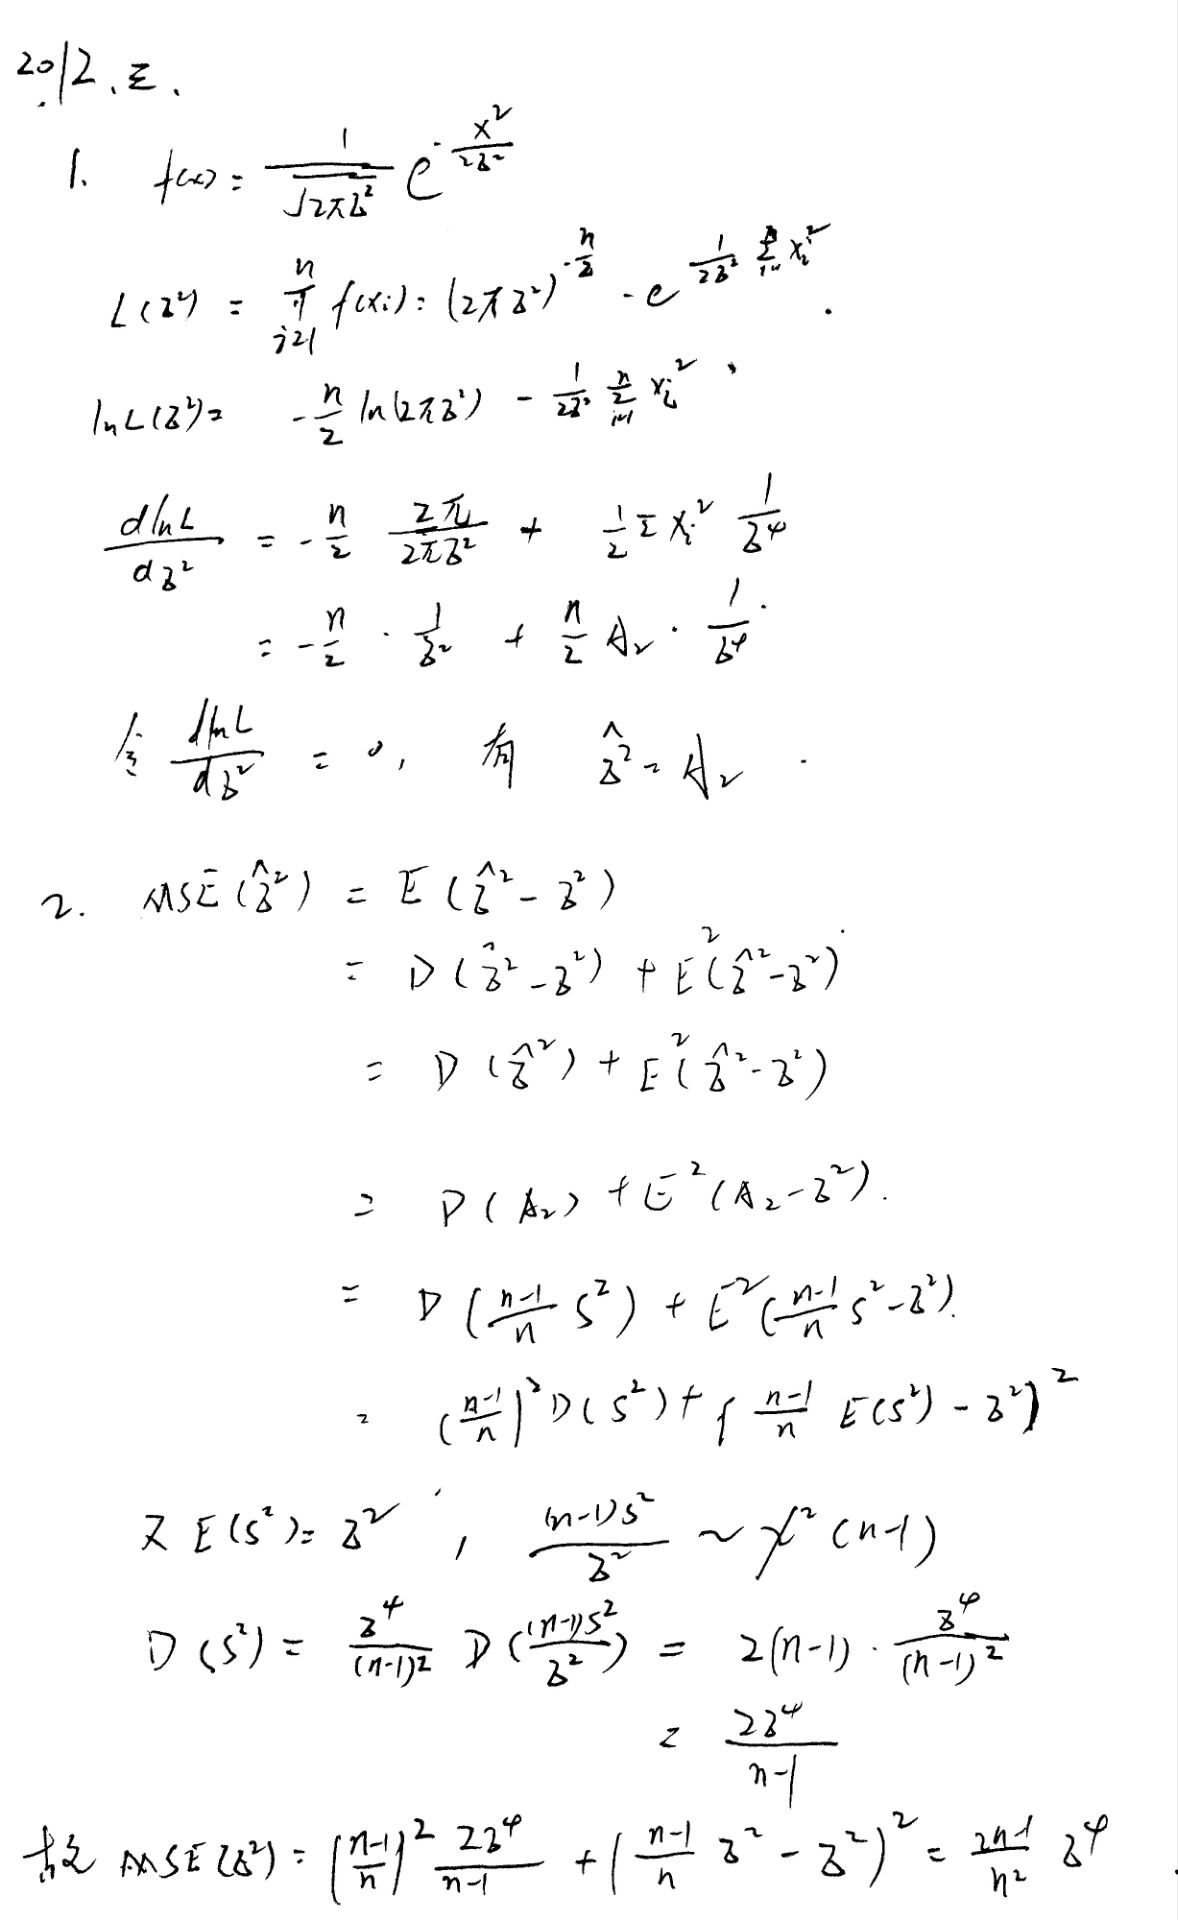 2012.三.
1. f(x) = \frac{1}{\sqrt{2πσ^2}} e^{-\frac{x^2}{2σ^2}}
L(σ^2) = \prod_{i=1}^{n} f(x_i) = (2πσ^2)^{-\frac{n}{2}} · e^{\frac{1}{2σ^2} \sum_{i=1}^{n} x_i^2}.
lnL(σ^2) = -\frac{n}{2} ln(2πσ^2) - \frac{1}{2σ^2} \sum_{i=1}^{n} x_i^2,
\frac{dlnL}{dσ^2} = -\frac{n}{2} \frac{2π}{2πσ^2} + \frac{1}{2} Σ x_i^2 \frac{1}{σ^4}
= -\frac{n}{2} · \frac{1}{σ^2} + \frac{n}{2} A_2 · \frac{1}{σ^4}.
令 \frac{dlnL}{dσ^2} = 0, 有 \hat{σ}^2 = A_2.
2. MSE(\hat{σ}^2) = E(\hat{σ}^2 - σ^2)
= D(\hat{σ}^2 - σ^2) + E^2(\hat{σ}^2 - σ^2)
= D(\hat{σ}^2) + E^2(\hat{σ}^2 - σ^2)
= D(A_2) + E^2(A_2 - σ^2).
= D(\frac{n-1}{n} S^2) + E^2(\frac{n-1}{n} S^2 - σ^2).
= (\frac{n-1}{n})^2 D(S^2) + (\frac{n-1}{n} E(S^2) - σ^2)^2
又 E(S^2) = σ^2, \frac{(n-1)S^2}{σ^2} ~ χ^2(n-1)
D(S^2) = \frac{σ^4}{(n-1)^2} D(\frac{(n-1)S^2}{σ^2}) = 2(n-1) · \frac{σ^4}{(n-1)^2}
= \frac{2σ^4}{n-1}
故 MSE(σ^2) = (\frac{n-1}{n})^2 \frac{2σ^4}{n-1} + (\frac{n-1}{n} σ^2 - σ^2)^2 = \frac{2n-1}{n^2} σ^4.